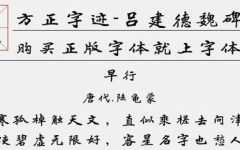 方正字迹-吕建德魏碑
购买正版字体就上字体
早行
唐代.陆龟蒙
寒孤棹触天文，直似乘槎去问津
使碧虚无限好，客星名字也愁人